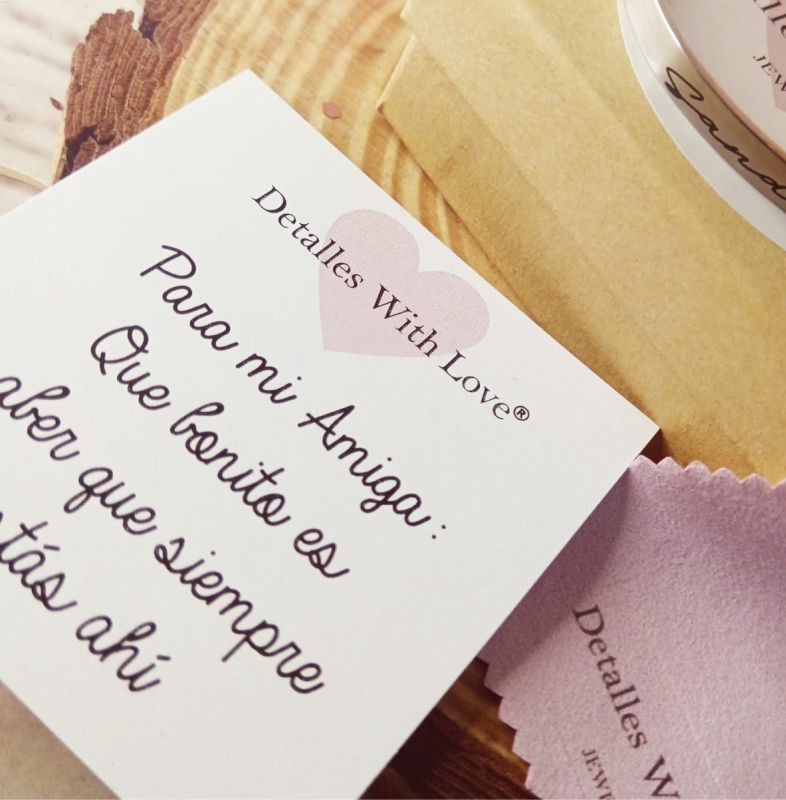 Detalles With Love®
Para mi Amiga:
Que bonito es
aber que siempre
tás ahí
Sand
Detalles W
JEW
JEW